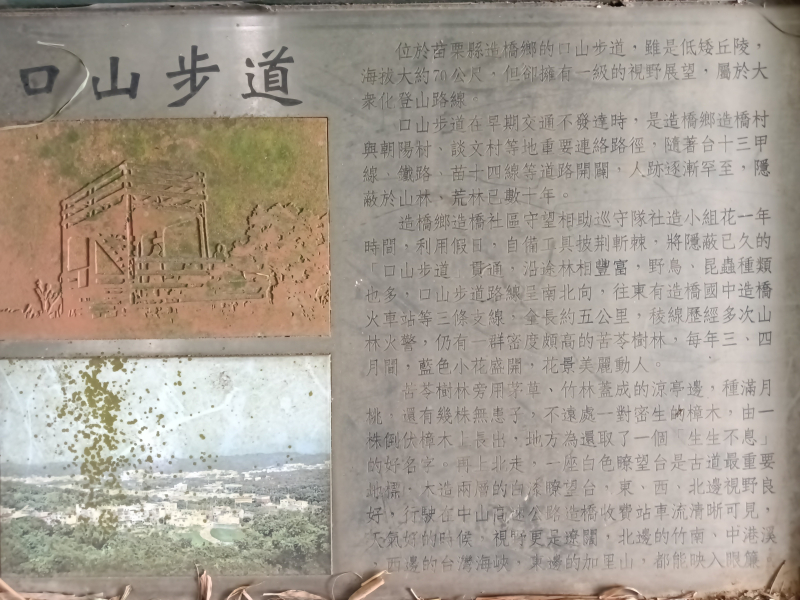 口山步道
位於苗栗縣造橋鄉的口山步道，雖是低矮丘陵，
海拔大約70公尺，但卻擁有一級的視野展望，屬於大
衆化登山路線。
口山步道在早期交通不發達時，是造橋鄉造橋村
與朝陽村、談文村等地重要連絡路徑，隨著台十三甲
線、鐵路、苗十四線等道路開闢，人跡逐漸罕至，隱
蔽於山林，荒林已數十年。
造橋鄉造橋社區守望相助巡守隊社造小組花一年
時間，利用假日，自備工具披荆斬棘，將隱蔽已久的
「口山步道」貫通，沿途林相豐富，野鳥、昆蟲種類
也多，口山步道路線呈南北向，往東有造橋國中造橋
火車站等三條支線，全長約五公里，稜線歷經多次山
林火警，仍有一群密度頗高的苦苓樹林，每年三、四
月間，藍色小花盛開，花景美麗動人。
苦苓樹林旁用茅草、竹林蓋成的涼亭邊，種滿月
桃，還有幾株無患子，不遠處一對密生的樟木，由一
株倒伏樟木上長出，地方為還取了一個「生生不息」
的好名字。再上北走，一座白色瞭望台是古道最重要
地標，木造兩層的白漆瞭望台，東、西、北邊視野良
好，行駛在中山高速公路造橋收費站車流清晰可見，
天氣好的時候，視野更是遼闊，北邊的竹南、中港溪
，西邊的台灣海峽，東邊的加里山，都能映入眼簾。